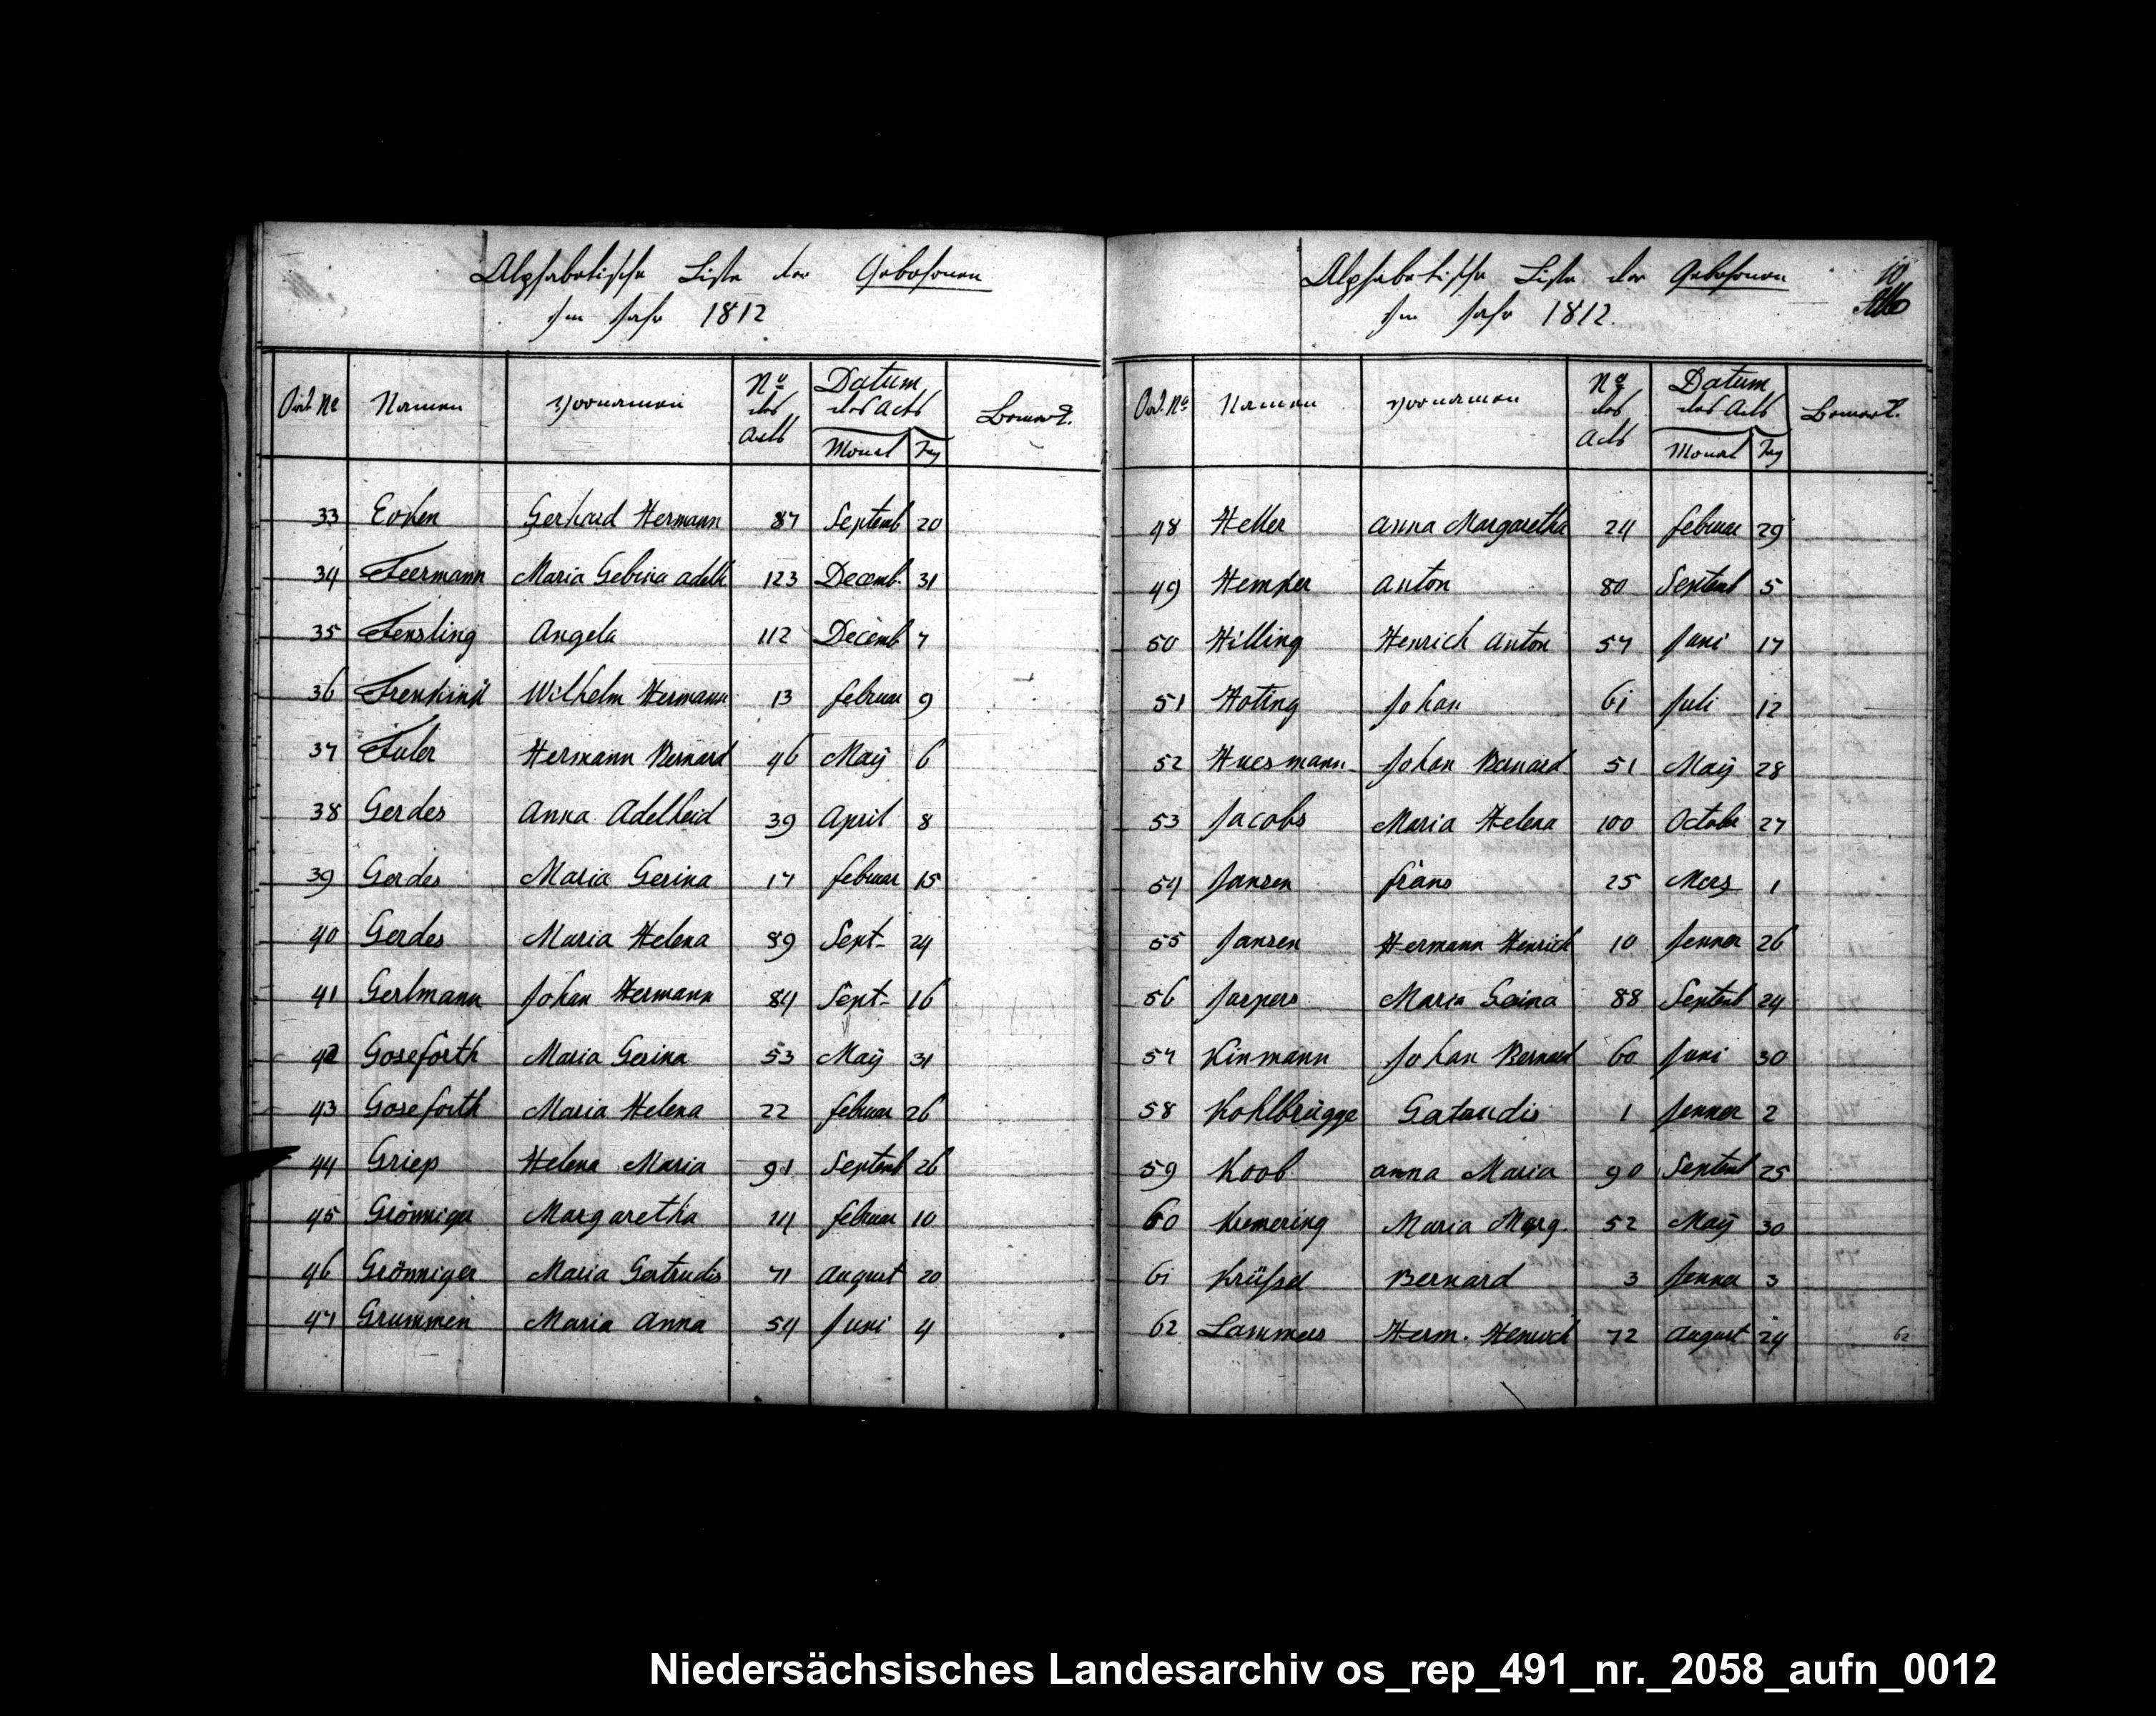 Alphabetische Liste der Gebohrnen
Im Jahr 1812
Ord. No Namen Vornamen No des Acts Datum des Acts Monat Tag Bemerk.
33 Eoken Gerhard Hermann 87 Septemb 20
34 Feermann Maria Gebina Adelh 123 Decemb. 31
35 Fensling Angela 112 Decemb 7
36 Wilhelm Hermann 13 februar 9
37 Fuler Hermann Bernard 46 Maÿ 6
38 Gerdes Anna Adelheid 39 April 8
39 Gerdes Maria Gerina 17 februar 15
40 Gerdes Maria Helena 89 Sept- 24
41 Gerlmann Johan Hermann 84 Sept- 16
42 Goseforth Maria Gerina 53 Maÿ 31
43 Goseforth Maria Helena 22 februar 26
44 Griep Helena Maria 91 Septemb 26
45 Grönniger Margaretha 14 februar 10
46 Grönniger Maria Gertrudis 71 August 20
47 Grummen Maria Anna 54 Juni 4
Alphabetische Liste der Gebohrnen
Im Jahr 1812.
10
Ord. No Namen Vornamen No des Acts Datum des Acts Monat Tag Bemerk.
48 Heller Anna Margaretha 24 februar 29
49 Hemker Anton 80 Septemb 5
50 Hilling Henrich Anton 57 Juni 17
51 Hoting Johan 61 Juli 12
52 Huesmann Johan Bernard 51 Maÿ 28
53 Jacobs Maria Helena 100 October 27
54 Jansen frans 25 Merz 1
55 Jansen Hermann Henrich 10 Jenner 26
56 Jaspers Maria Gerina 88 Septemb 24
57 Kinmann Johan Bernard 60 Juni 30
58 Kohlbrügge Gertrudis 1 Jenner 2
59 Koob anna Maria 90 Septemb 25
60 Kremering Maria Marg. 52 Maÿ 30
61 Krüssel Bernard 3 Jenner 3
62 Lammers Herm. Henrich 72 August 24
62
Niedersächsisches Landesarchiv os_rep_491_nr._2058_aufn_0012